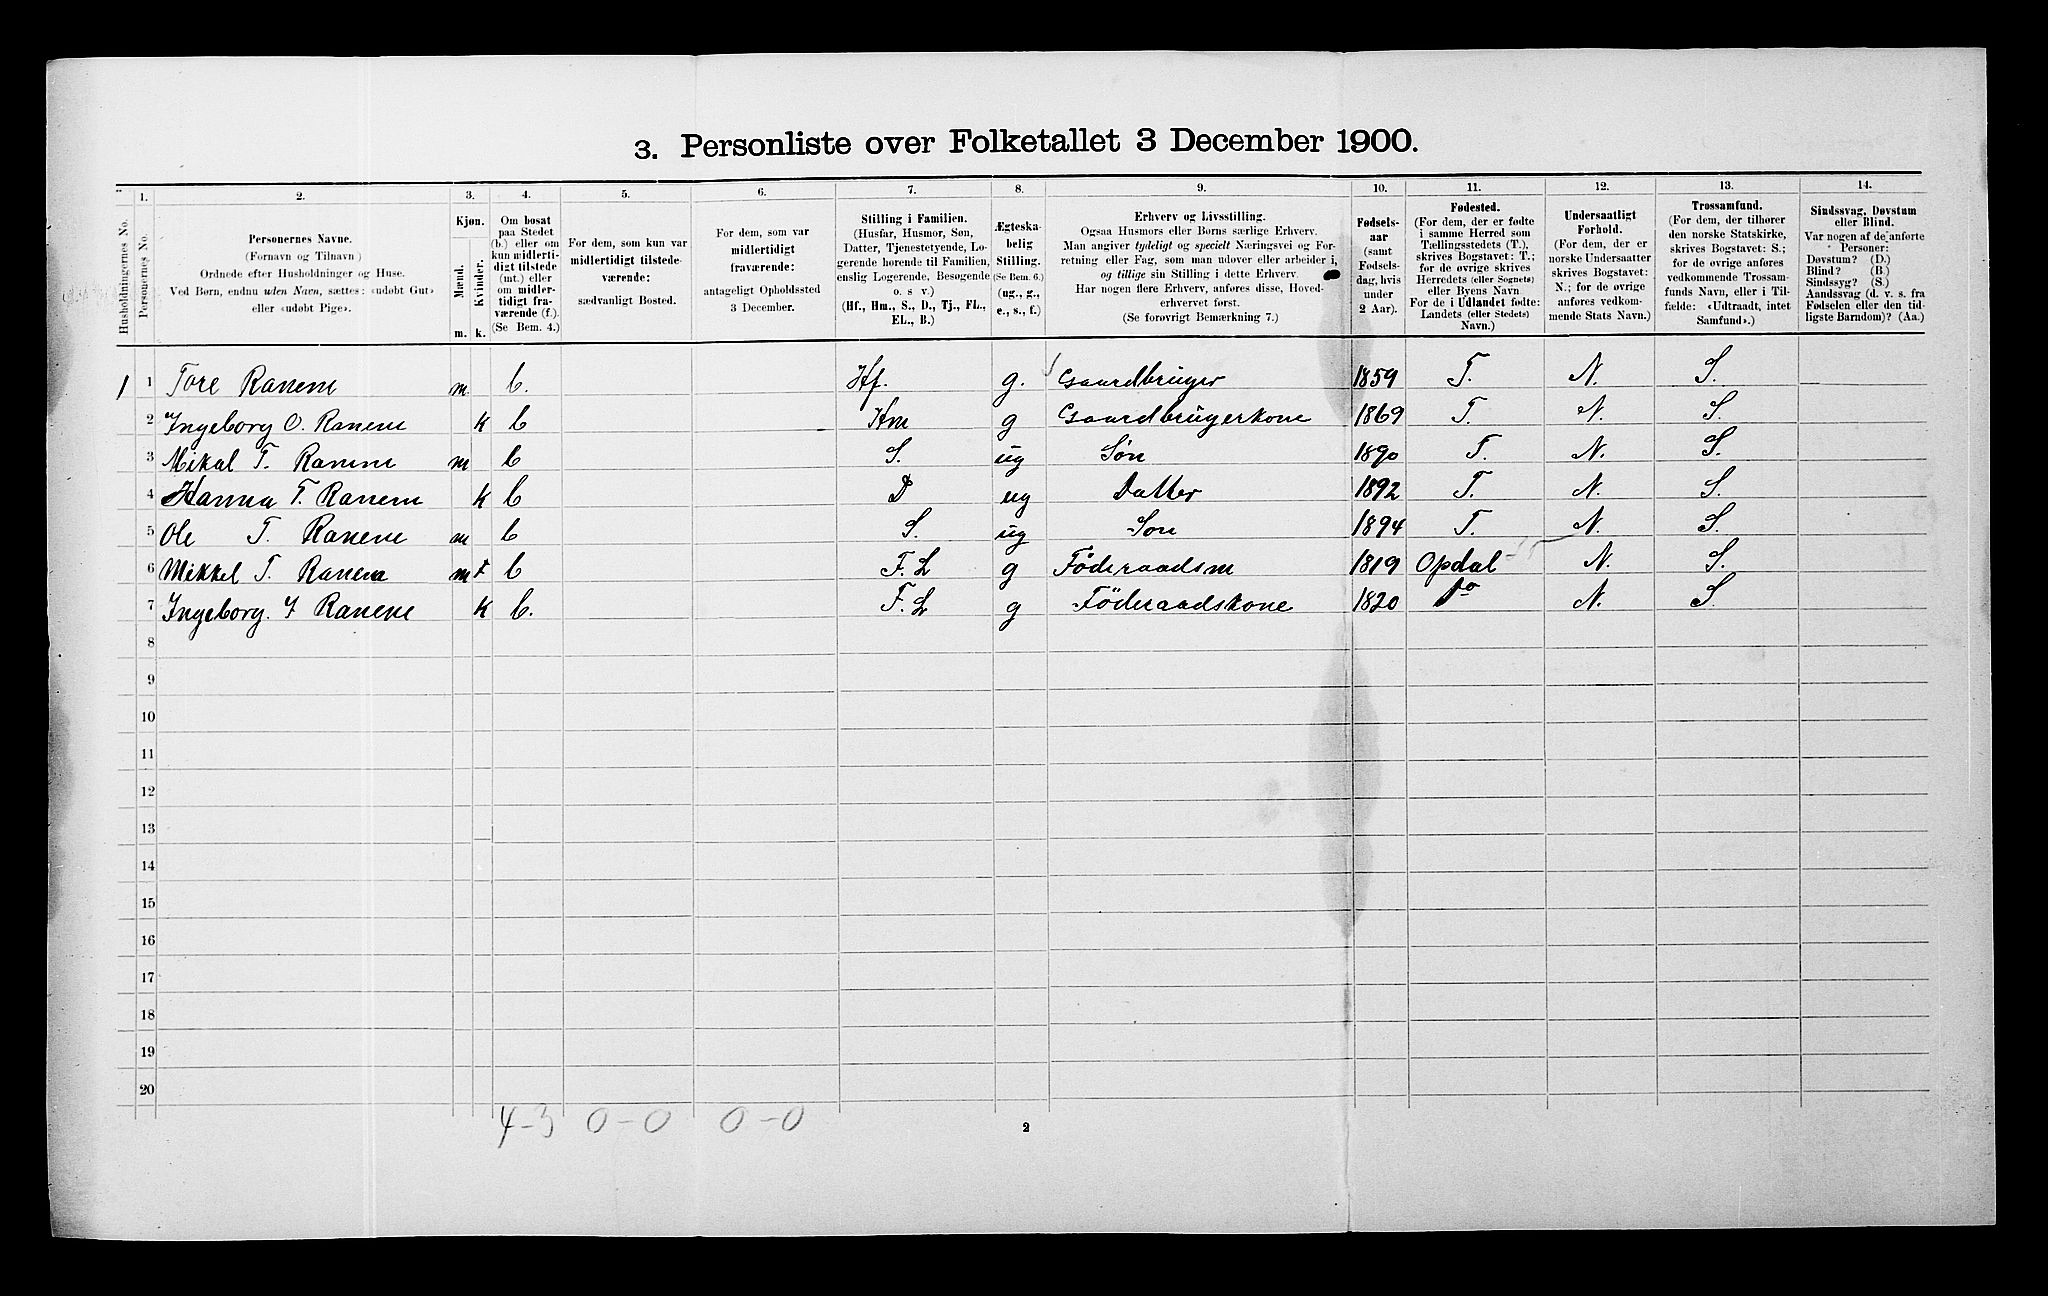 3. Personliste over Folketallet 3 December 1900.
1. 2. 3. 4. 5. 6. 7. 8. 9. 10. 11. 12. 13. 14.
Husholdningernes No.
Personernes No.
Personernes Navne.
(Fornavn og Tilnavn)
Ordnede efter Husholdninger og Huse.
Ved Børn, endnu uden Navn, sættes: «udøbt Gut»
eller «udøbt Pige».
Kjøn.
Mænd.
Kvinder.
m. k.
Om bosat
paa Stedet
(b.) eller om
kun midlerti-
digt tilstede
(mt.) eller
om midler-
tidigt fra-
værende (f.).
(Se Bem. 4.)
For dem, som kun var
midlertidigt tilstede-
værende:
sædvanligt Bosted.
For dem, som var
midlertidigt
fraværende:
antageligt Opholdssted
3 December.
Stilling i Familien.
(Husfar, Husmor, Søn,
Datter, Tjenestetyende, Lo-
gerende hørende til Familien,
enslig Logerende, Besøgende
o. s. v.)
(Hf., Hm., S., D., Tj., FL.,
EL., B.)
Ægteska-
belig
Stilling.
(Se Bem. 6.)
(ug., g.,
e., s., f.)
Erhverv og Livsstilling.
Ogsaa Husmors eller Børns særlige Erhverv.
Man angiver tydeligt og specielt Næringsvei og For-
retning eller Fag, som man udøver eller arbeider i,
og tillige sin Stilling i dette Erhverv.
Har nogen flere Erhverv, anføres disse, Hoved-
erhvervet først.
(Se forøvrigt Bemærkning 7.)
Fødsels-
aar
(samt
Fødsels-
dag, hvis
under
2 Aar).
Fødested.
(For dem, der er fødte
i samme Herred som
Tællingsstedets (T.),
skrives Bogstavet: T.;
for de øvrige skrives
Herredets (eller Sognets)
eller Byens Navn
For de i Udlandet fødte:
Landets (eller Stedets)
Navn.)
Undersaatligt
Forhold.
(For dem, der er
norske Undersaatter
skrives Bogstavet:
N.; for de øvrige
anføres vedkom-
mende Stats Navn.)
Trossamfund.
(For dem, der tilhører
den norske Statskirke,
skrives Bogstavet: S.;
for de øvrige anføres
vedkommende Trossam-
funds Navn, eller i Til-
fælde: «Udtraadt, intet
Samfund».)
Sindssvag, Døvstum
eller Blind.
Var nogen af de anførte
Personer:
Døvstum? (D.)
Blind? (B.)
Sindssyg? (S.)
Aandssvag (d. v. s. fra
Fødselen eller den tid-
ligste Barndom)? (Aa.)
1 1 Tore Ranem m b. Hf. g. Gaardbruger 1859 T. N. S.
2 Ingeborg O. Ranem k b Hm g Gaardbrugerkone 1869 T. N. S.
3 Mikal T. Ranem m b S. ug Søn 1890 T. N. S.
4 Hanna T. Ranem k b D ug Datter 1892 T. N. S.
5 Ole T. Ranem m b S. ug Søn 1894 T. N. S.
6 Mikkel T. Ranem m b F. L g Föderaadsm 1819 Opdal N. S.
7 Ingeborg. J Ranem k b. F. L g Föderaadskone 1820 Do N. S.
8
9
10
11
12
13
14
15
16
17
18
19
20
4-3 0-0 0-0
2